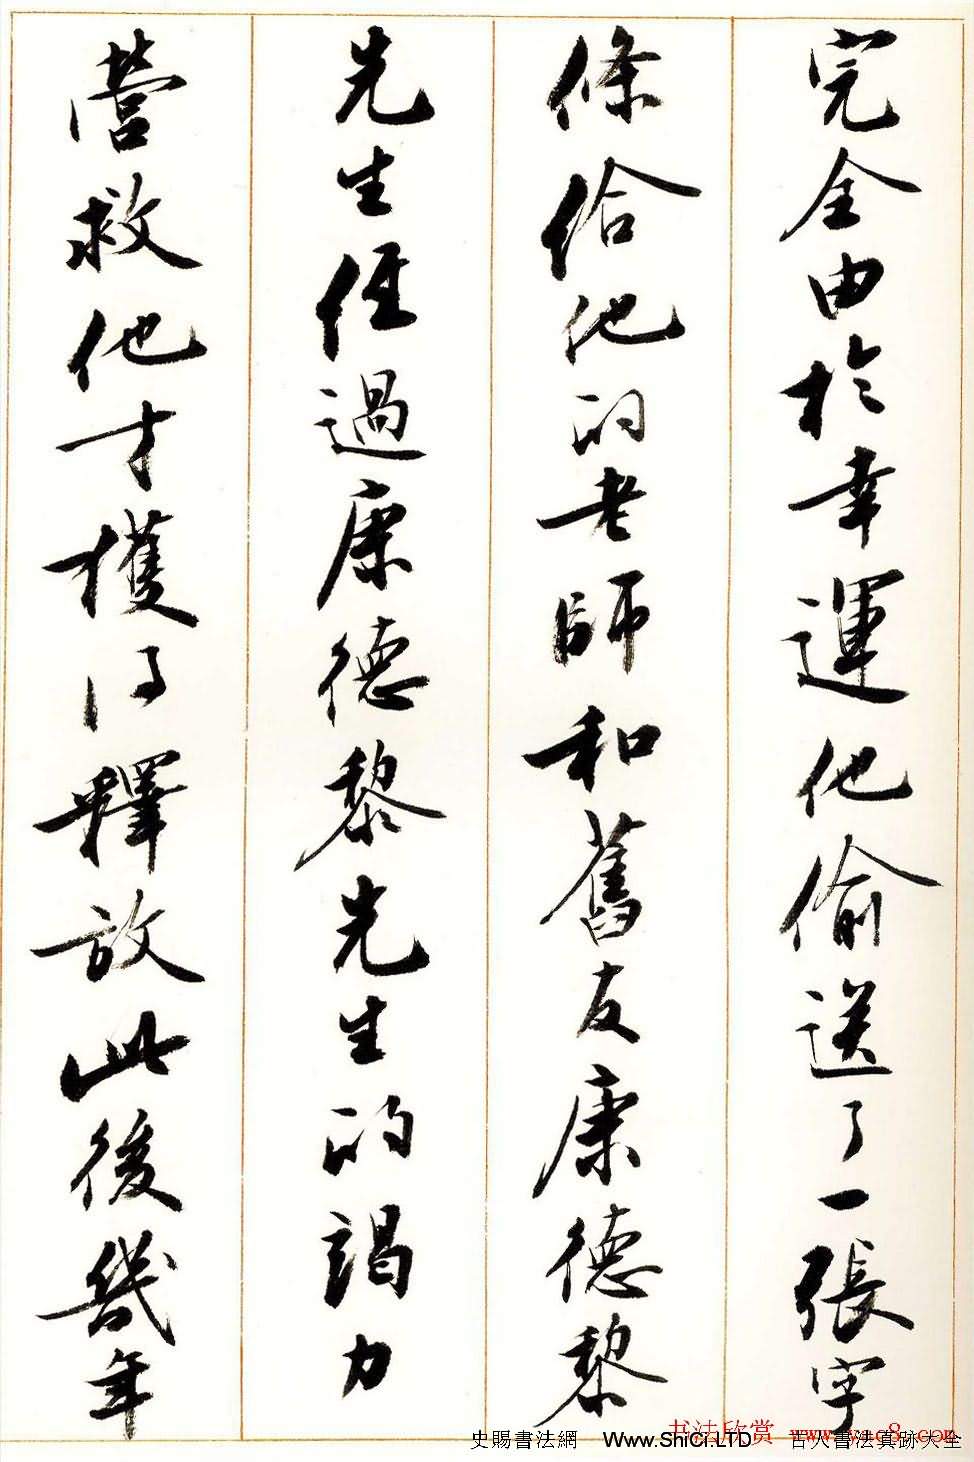 完全由於幸運他偷送了一張字
條給他的老師和舊友康德黎
先生經過康德黎先生的竭力
營救他才獲得釋放此後幾年
书法欣赏 www.yac8.com
史賜書法網 Www.ShiCi.LTD 古人書法真跡大全